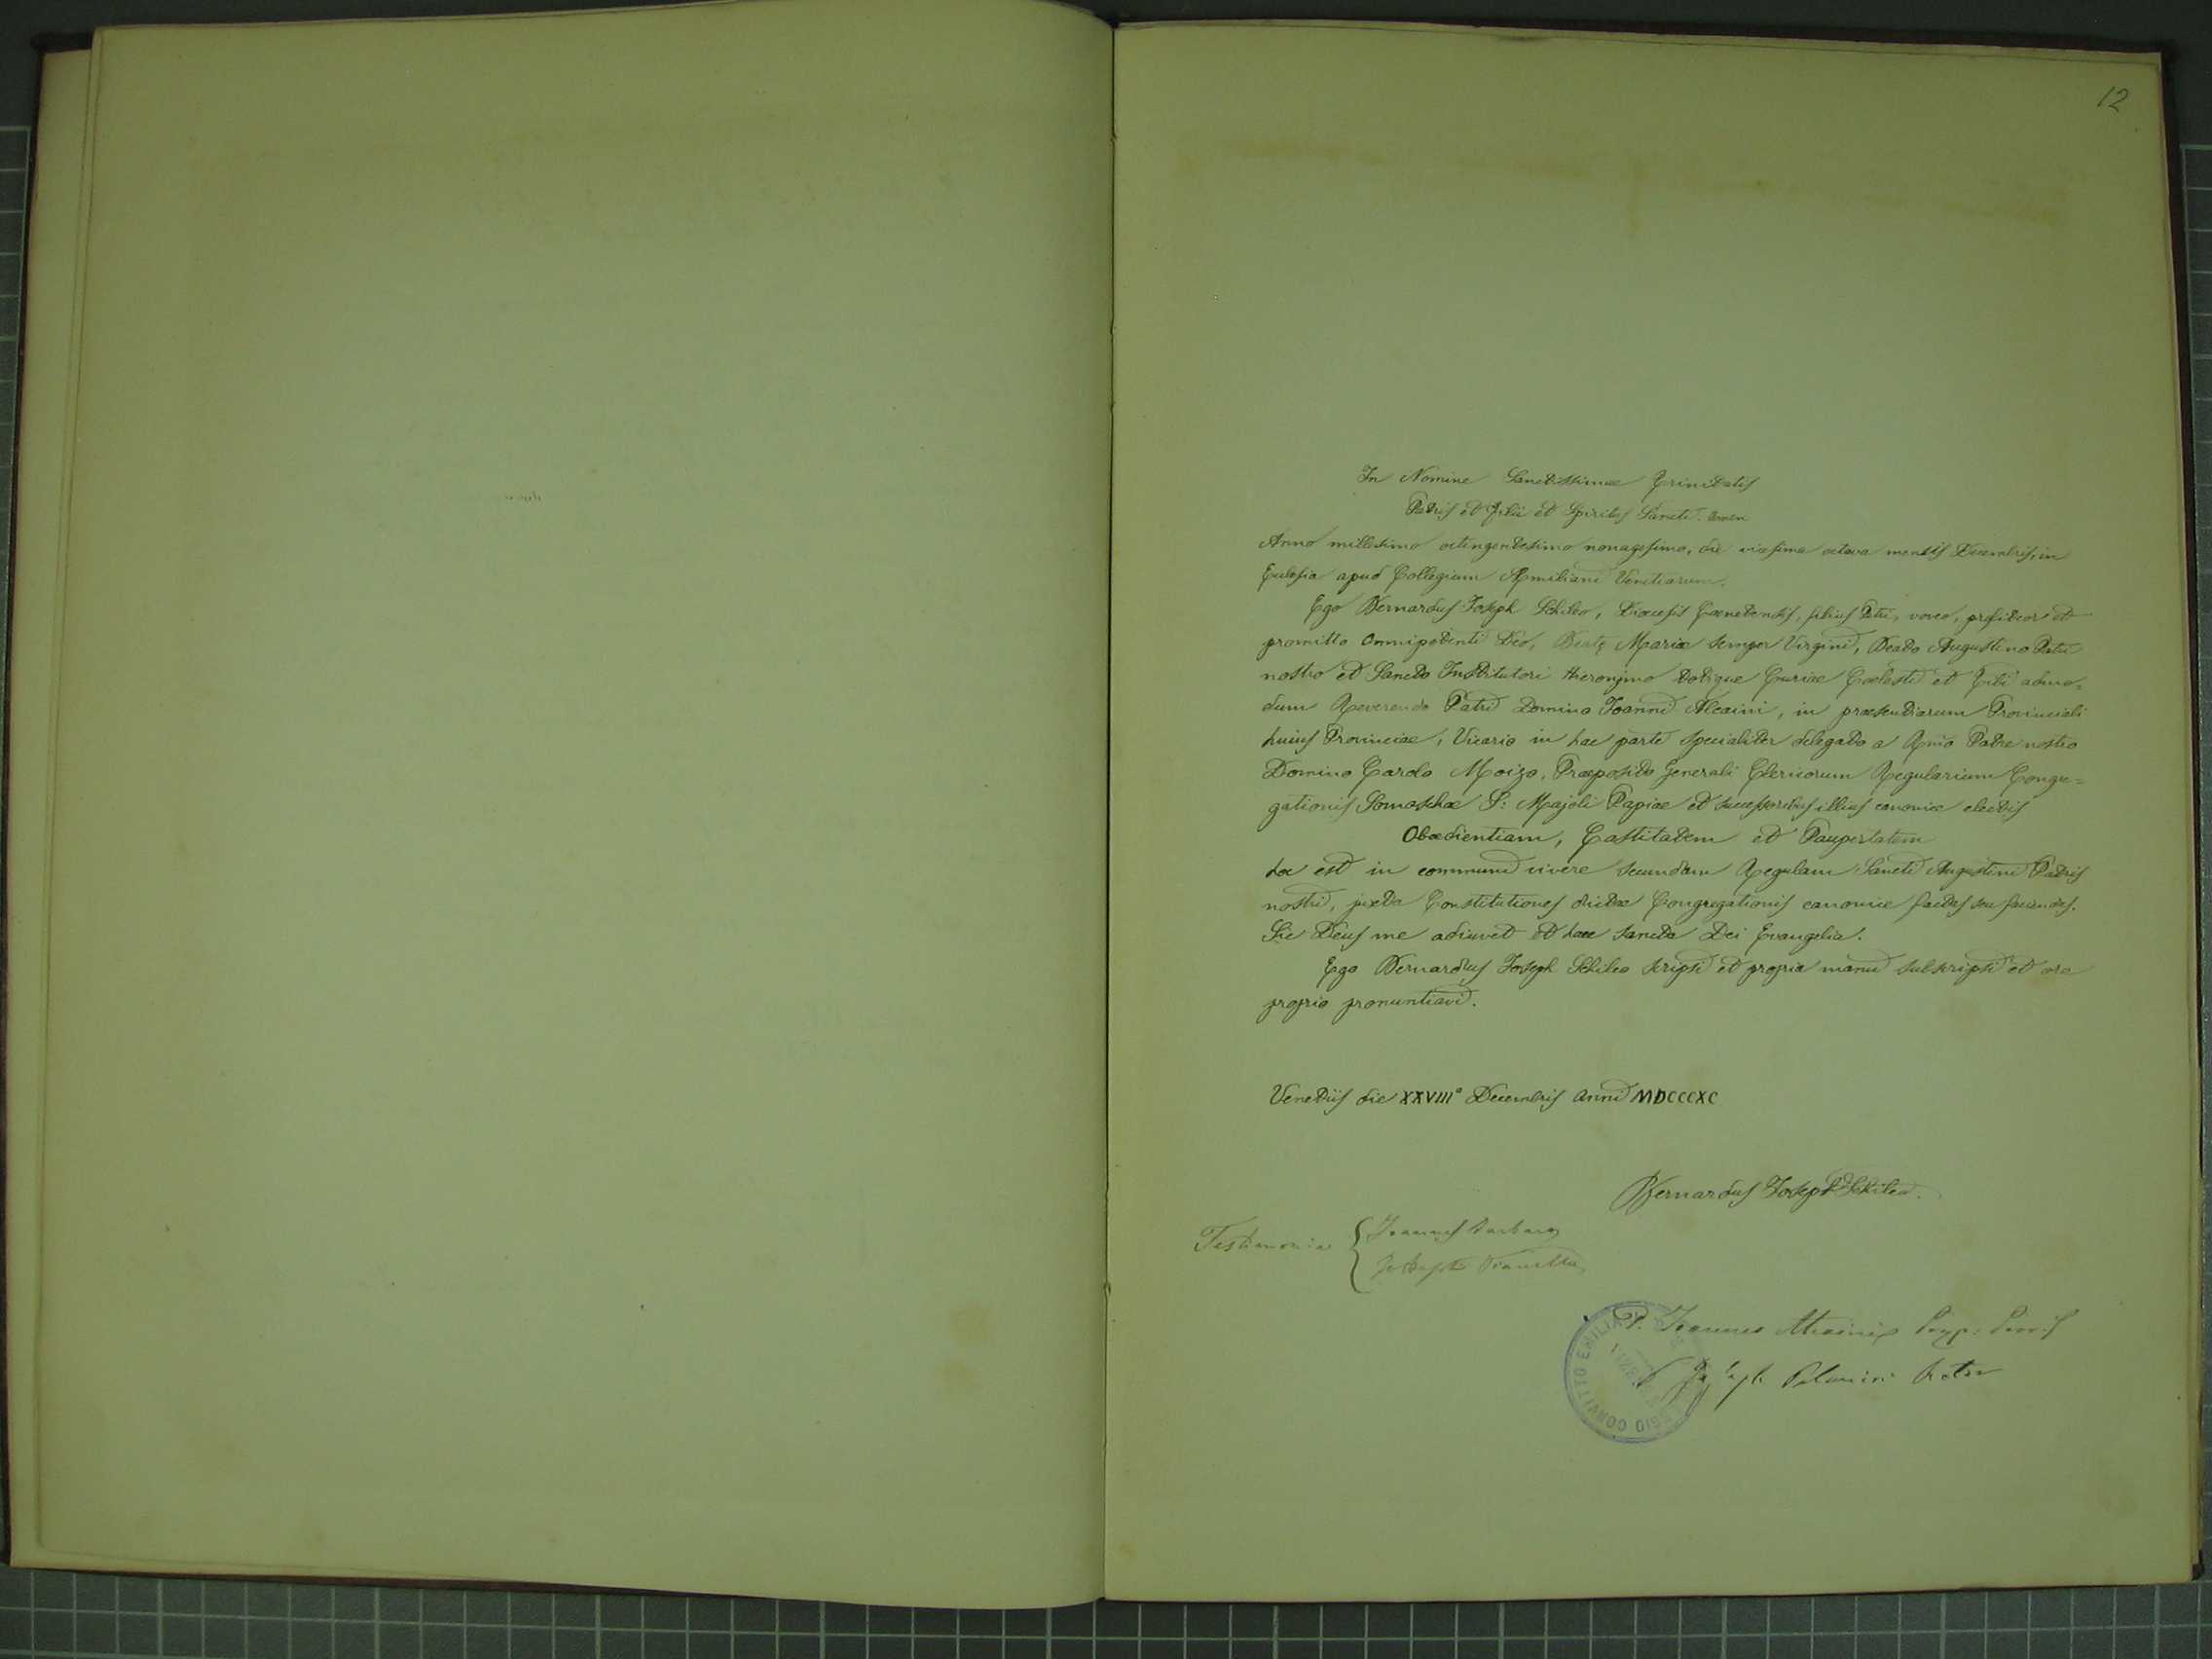 12
In Nomine Sanctissimae Trinitatis
Patris et Filii et Spiritus Sancti. Amen
Anno millesimo octingentesimo nonagesimo, die vicesima octava mensis Decembris, in
Ecclesia apud Collegium Aemiliani Venetiarum.
Ego Bernardus Joseph Schileo, Dioecesis Coenetensis, filius Petri, voveo, profiteor et
promitto Omnipotenti Deo, Beatę Mariae semper Virgini, Beato Augustino Patri
nostro et Sancto Institutori Hieronymo totique Curiae Coelesti et Tibi admo=
dum Reverendo Patri Domino Joanni Alcaini, in praesentiarum Provinciali
huius Provinciae, Vicario in hac parte specialiter delegato a Rmo Patre nostro
Domino Carolo Moizo, Praeposito Generali Clericorum Regularium Congre=
gationis Somaschae S: Majoli Papiae et successoribus illius canonice electis
Obedientiam, Castitatem et Paupertatem
hoc est in communi vivere secundum Regulam Sancti Augustini Patris
nostri, juxta Constitutiones dictae Congregationis canonice factas seu faciendas.
Sic Deus me adiuvet et haec sancta Dei Evangelia.
Ego Bernardus Joseph Schileo scripsi et propria manu subscripsi et ore
proprio pronuntiavi.
Venetiis die XXVIIIa Decembris anni MDCCCXC
Bernardus Joseph Schileo.
Testimonia { Joannes Barbaro
Joseph
P. Joannes Alcaini Provis
Joseph Palmieri Rector
CONVITTO EMILIA